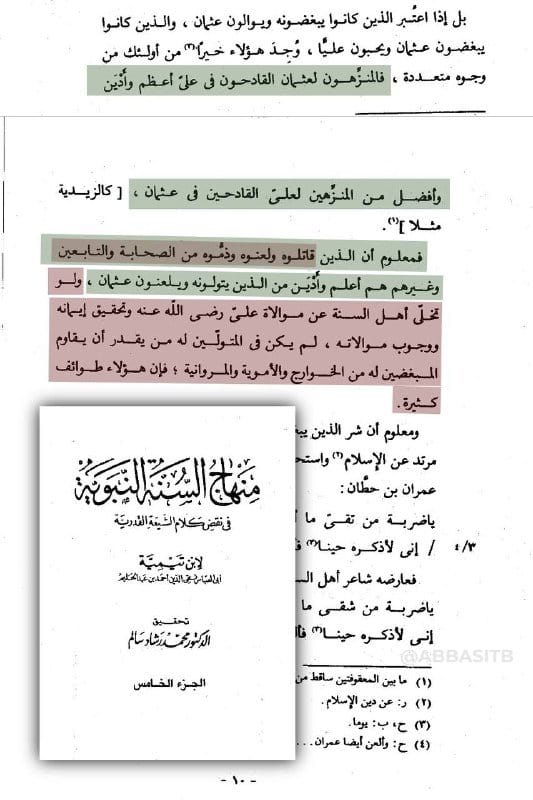 بل إذا اعتُبر الذين كانوا يبغضونه ويوالون عثمان ، والذين كانوا
يبغضون عثمان ويحبون عليًّا ، وُجِدَ هؤلاء خيراً(٣) من أولئك من
وجوه متعددة ، فالمنزِّهون لعثمان القادحون فى علىّ أعظم وأَدْيَن
وأفضل من المنزِّهين لعلىّ القادحين فى عثمان ، [ كالزيدية
مثلا ](١) .
فمعلوم أن الذين قاتلوه ولعنوه وذمُّوه من الصحابة والتابعين
وغيرهم هم أعلم وأَدْيَن من الذين يتولونه ويلعنون عثمان ، ولو
تخلّى أهل السنة عن موالاة علىّ رضى الله عنه وتحقيق إيمانه
ووجوب موالاته ، لم يكن فى المتولّين له من يقدر أن يقاوم
المبغضين له من الخوارج والأموية والمروانية ؛ فإن هؤلاء طوائف
كثيرة .
ومعلوم أن شر الذين
مرتد عن الإسلام(٢)
عمران بن حطَّان :
ياضربة من تقىّ ما
٣/٤ / إنى لأذكره حينا(٣)
فعارضه شاعر أهل
ياضربة من شقى ما
إنى لأذكره حينا(٣)
(١) ما بين المعقوفتين ساقط من
(٢) ر: عن دين الإسلام .
(٣) ح ، ب : يوما .
(٤) ح : وألعن أيضا عمران ...
- ١٠ -
منهاج السنة النبوية
فى نقض كلام الشيعة القدرية
لابن تيمية
أبى العباس تقى الدين أحمد بن عبد الحليم
تحقيق
الدكتور محمد رشاد سالم
الجزء الخامس
@ABBASITB